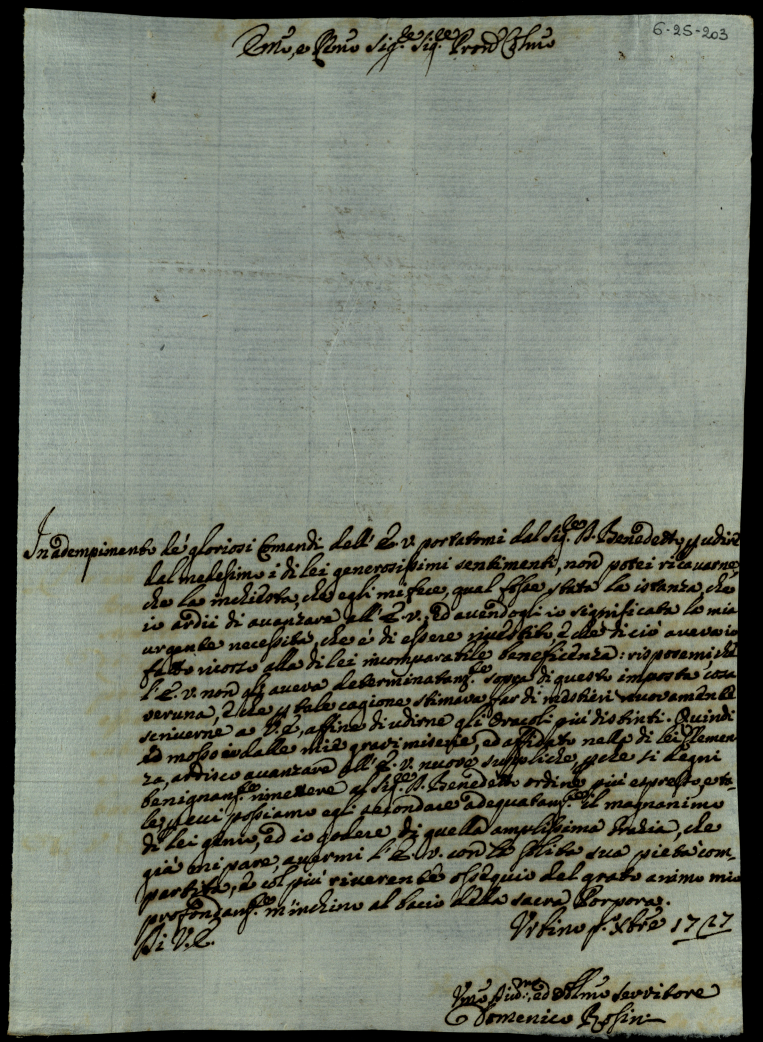 6-25-203
Emo, e Rmo Sig.re Sig.re Prone Colmo
In adempimento de' gloriosi Comandi dell' E. V. portatomi dal Sig.re D. Benedetto, p udire
dal medesimo i di lei generosissimi sentimenti, non potei ricavarne,
che la inchiesta, che egli mi fece, qual fosse stata la istanza, che
io ardii di avanzare all' E. V., ed avendogli io significata la mia
urgente necessità, che è di essere rivestito, e che di ciò aveva io
fatto ricorso alla di lei incomparabile beneficenza: risposemi, che
l' E. V. non gli aveva determinatam.te sopra di questo imposta cosa
veruna, e che p tale cagione stimava far di mestieri nuovamente
scriverne a V. E., affine di udirne gli Oracoli più distinti. Quindi
ed mosso io dalle mie gravi miserie, ed affidato nella di lei Clemen
za, ardisco avanzare all' E. V. nuove suppliche, pche si degni
benignam.te rimettere al Sig.re D. Benedetto ordine più espresso, e ta-
le, p cui possiamo egli secondare adequatam.te il magnanimo
di lei genio, ed io godere di quella amplissima Grazia, che
già mi pare, avermi l' E. V. con la solita sua pietà com-
partita, e col più riverente ossequio del grato animo mio
profondam.te m'inchino al bacio della sacra Porpora.
Di V. E. Urbino p.o Xbre 1727
Umo Div.mo, ed Obblmo Servitore
Domenico Rosini